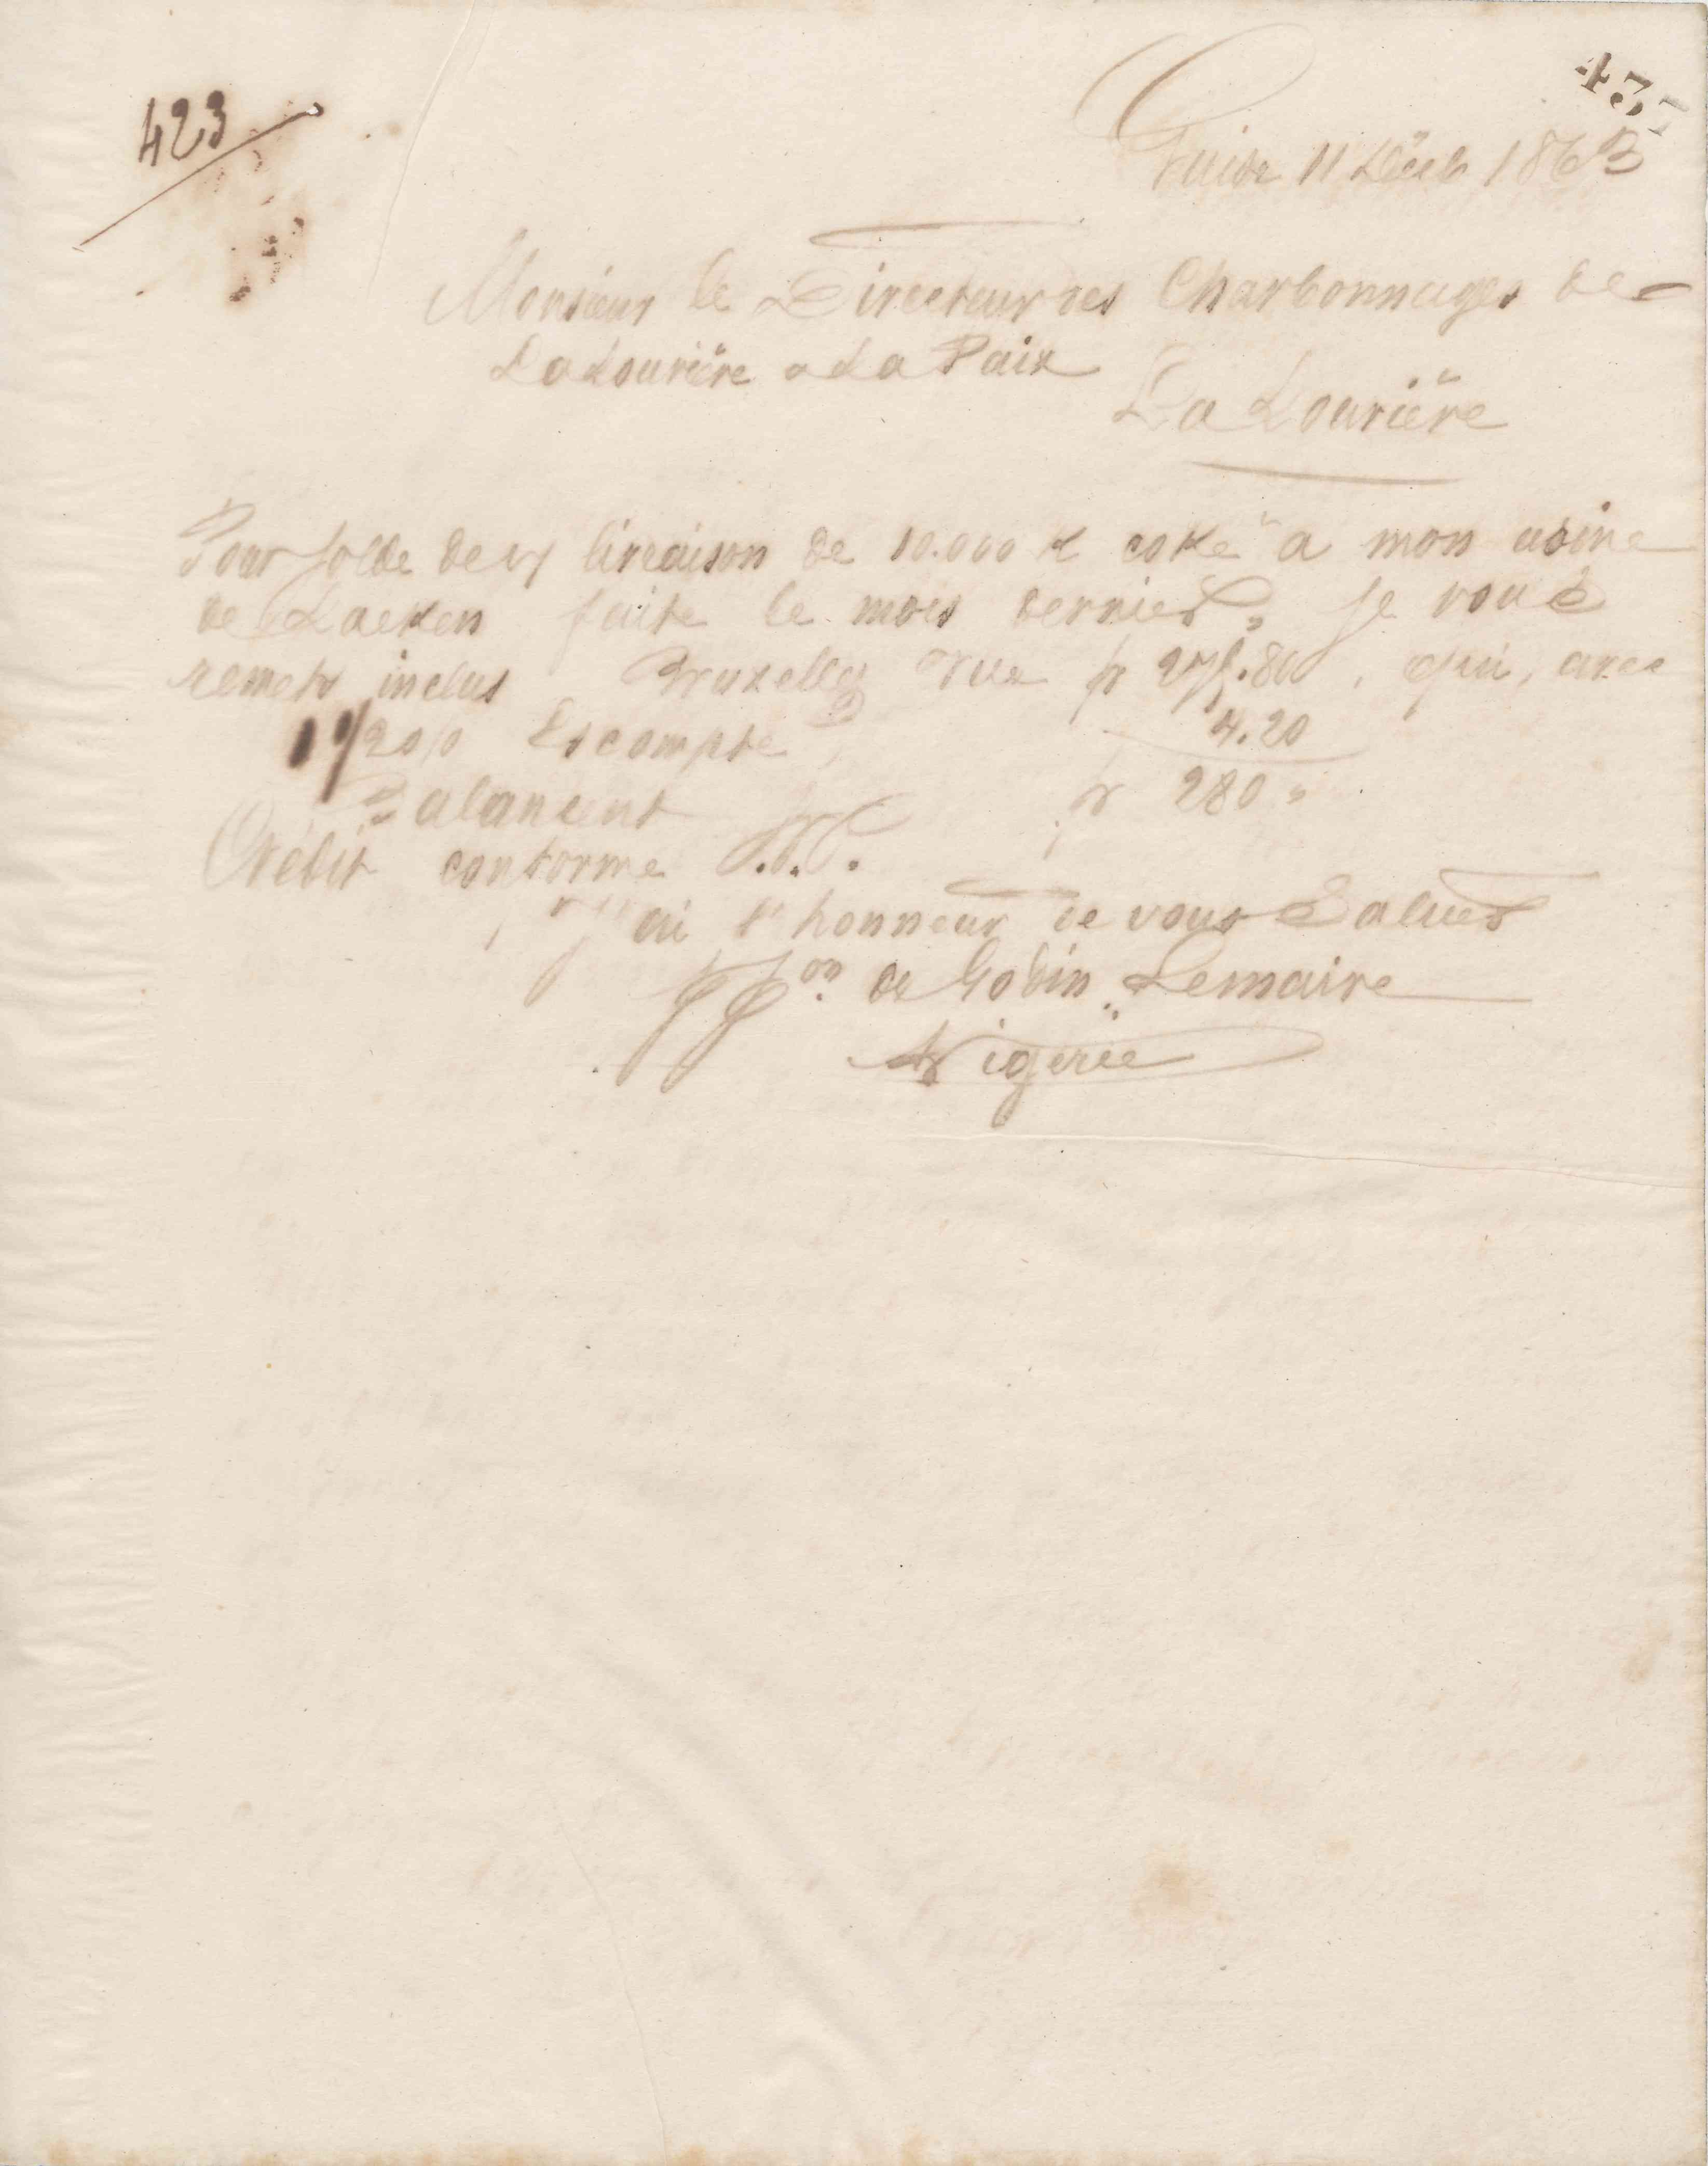 423
Guise 11 Déc 1863
Monsieur le Directeur des Charbonnages de
La Louvière & La Paix
La Louvière
Pour solde de v/ livraison de 10.000 K coke a mon usine
de Laeken faite le mois dernier, je vous
remets inclus Bruxelles vue fr 275.80, qui, avec
1 1/2 0/0 Escompte 4.20
Balancent fr 280 "
Crédit conforme S.V.P.
J'ai l'honneur de vous Saluer
pp.on de Godin Lemaire